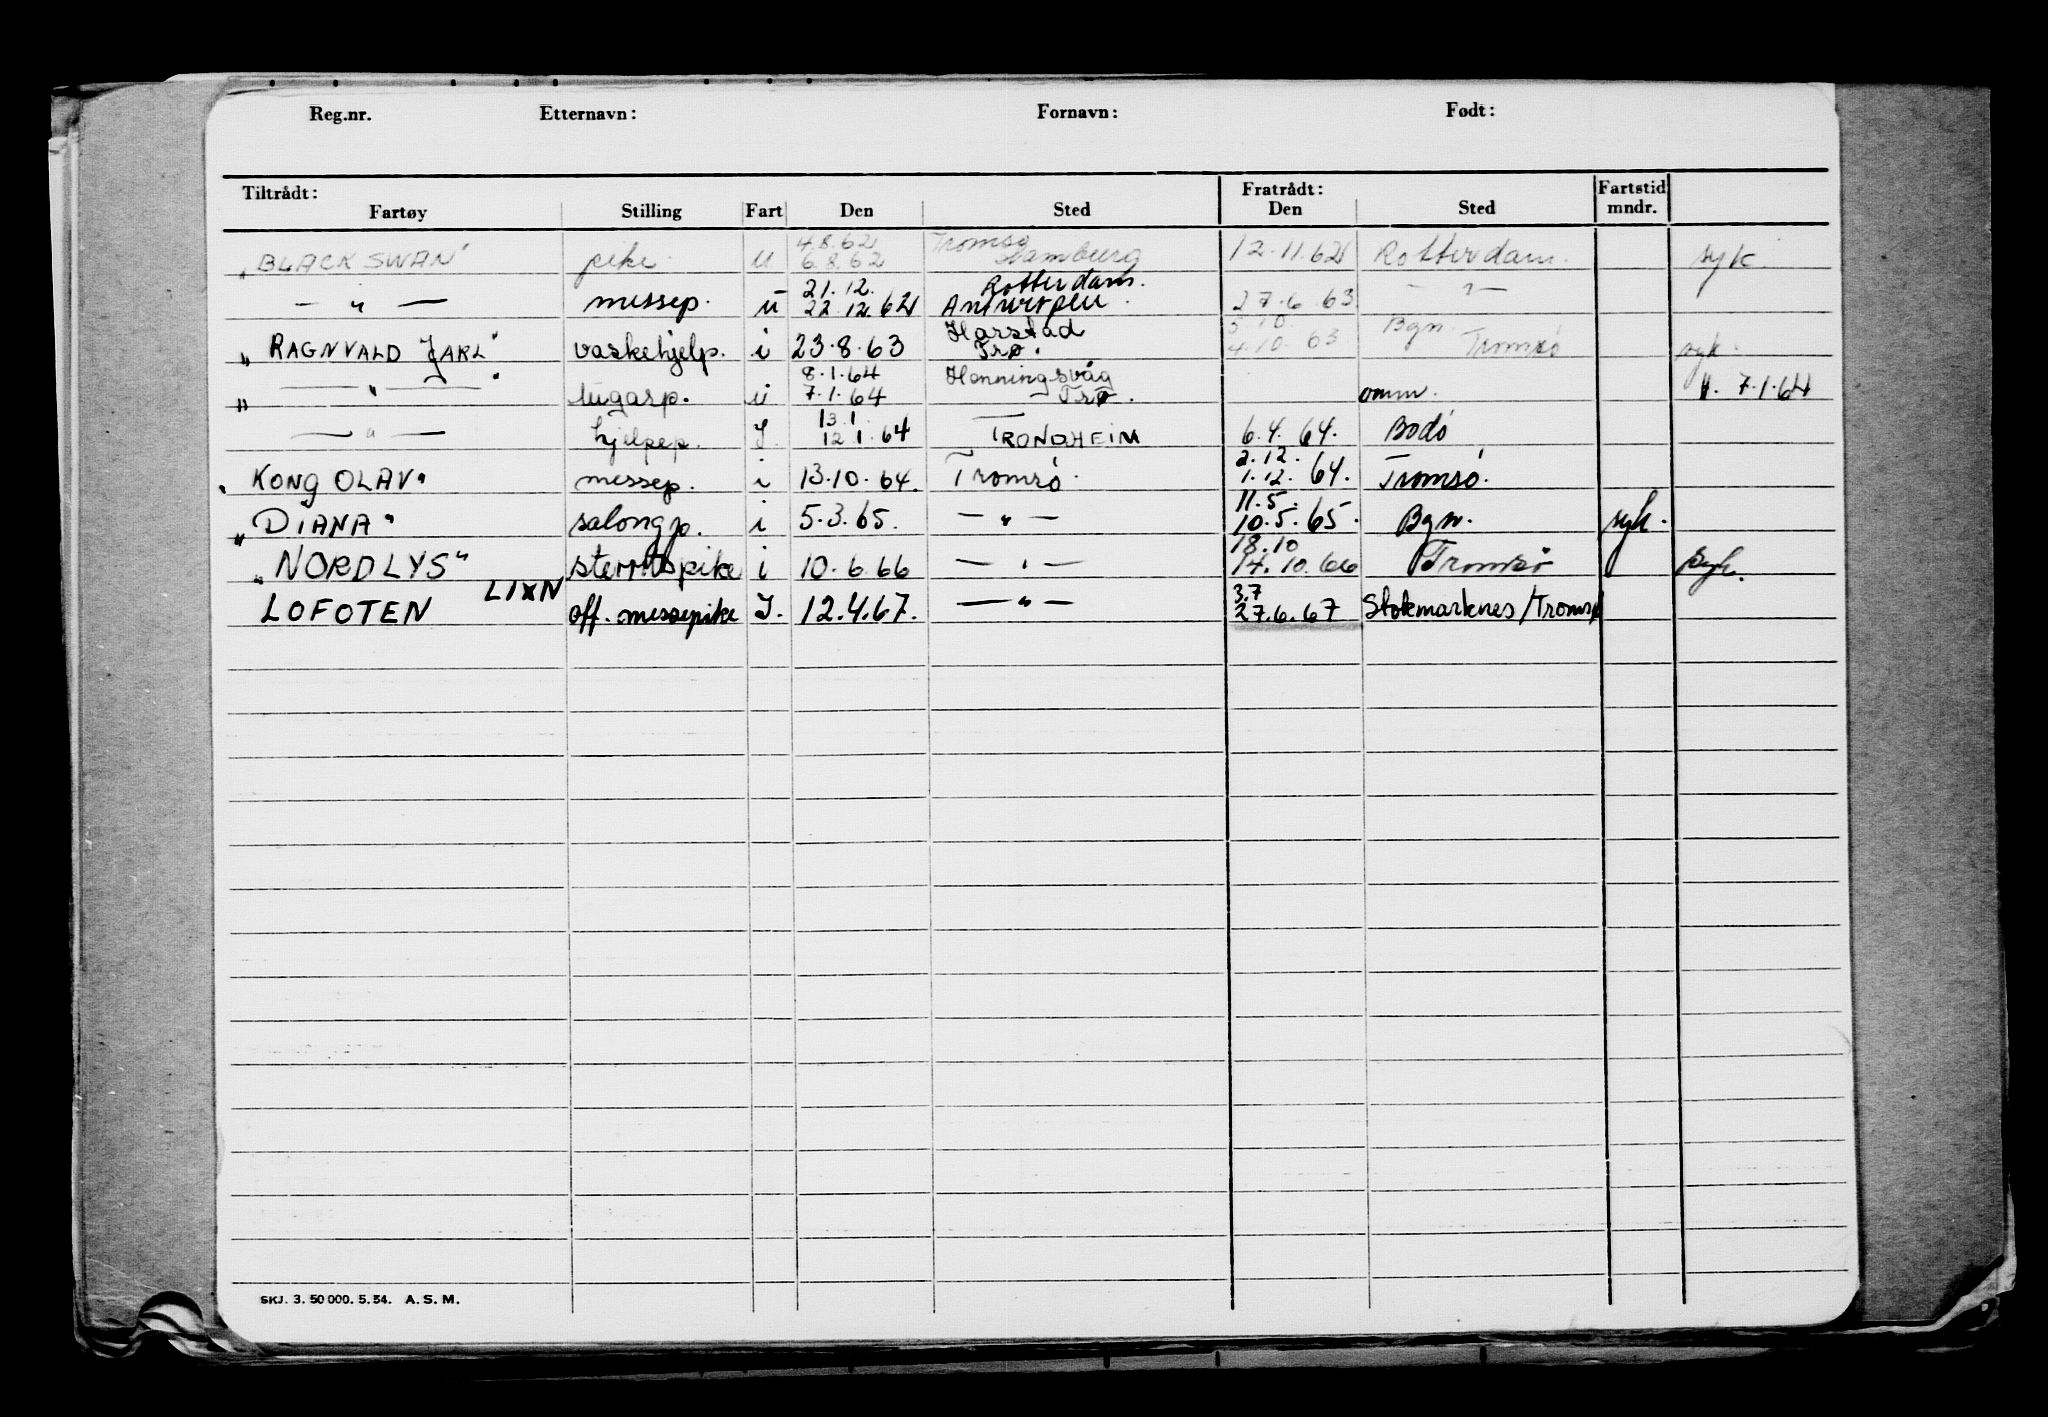 Reg.nr. Etternavn: Fornavn: Født:
Tiltrådt: Fratrådt: Fartstid
Fartøy Stilling Fart Den Sted Den Sted mndr.
4.8.62 Tromsø
"BLACK SWAN" pike u 6.8.62 Hamburg 12.11.62 Rotterdam. syk.
21.12. Rotterdam.
— " — messep. u 22.12.62 Antwerpen. 27.6.63 — " —
Harstad 5.10. Bgn.
"RAGNVALD JARL" vaskehjelp. i 23.8.63 Trø. 4.10.63 Tromsø syk.
8.1.64 Honningsvåg
" — " — " lugarp. u 7.1.64 Trø. omm. 7.1.64
13.1.
— " — hjelpep. I. 12.1.64 TRONDHEIM 6.4.64. Bodø
2.12.
"KONG OLAV" messep. i 13.10.64. Tromsø. 1.12.64. Tromsø.
11.5.
"DIANA" salongp. i 5.3.65. — " — 10.5.65. Bgn. syk.
18.10
"NORDLYS" i 10.6.66 — " — 14.10.66 Tromsø syk.
LIXN 3.7
LOFOTEN off. messepike I. 12.4.67. — " — 27.6.67 Stokmarknes/Tromsø
SKJ. 3. 50 000. 5. 54. A. S. M.